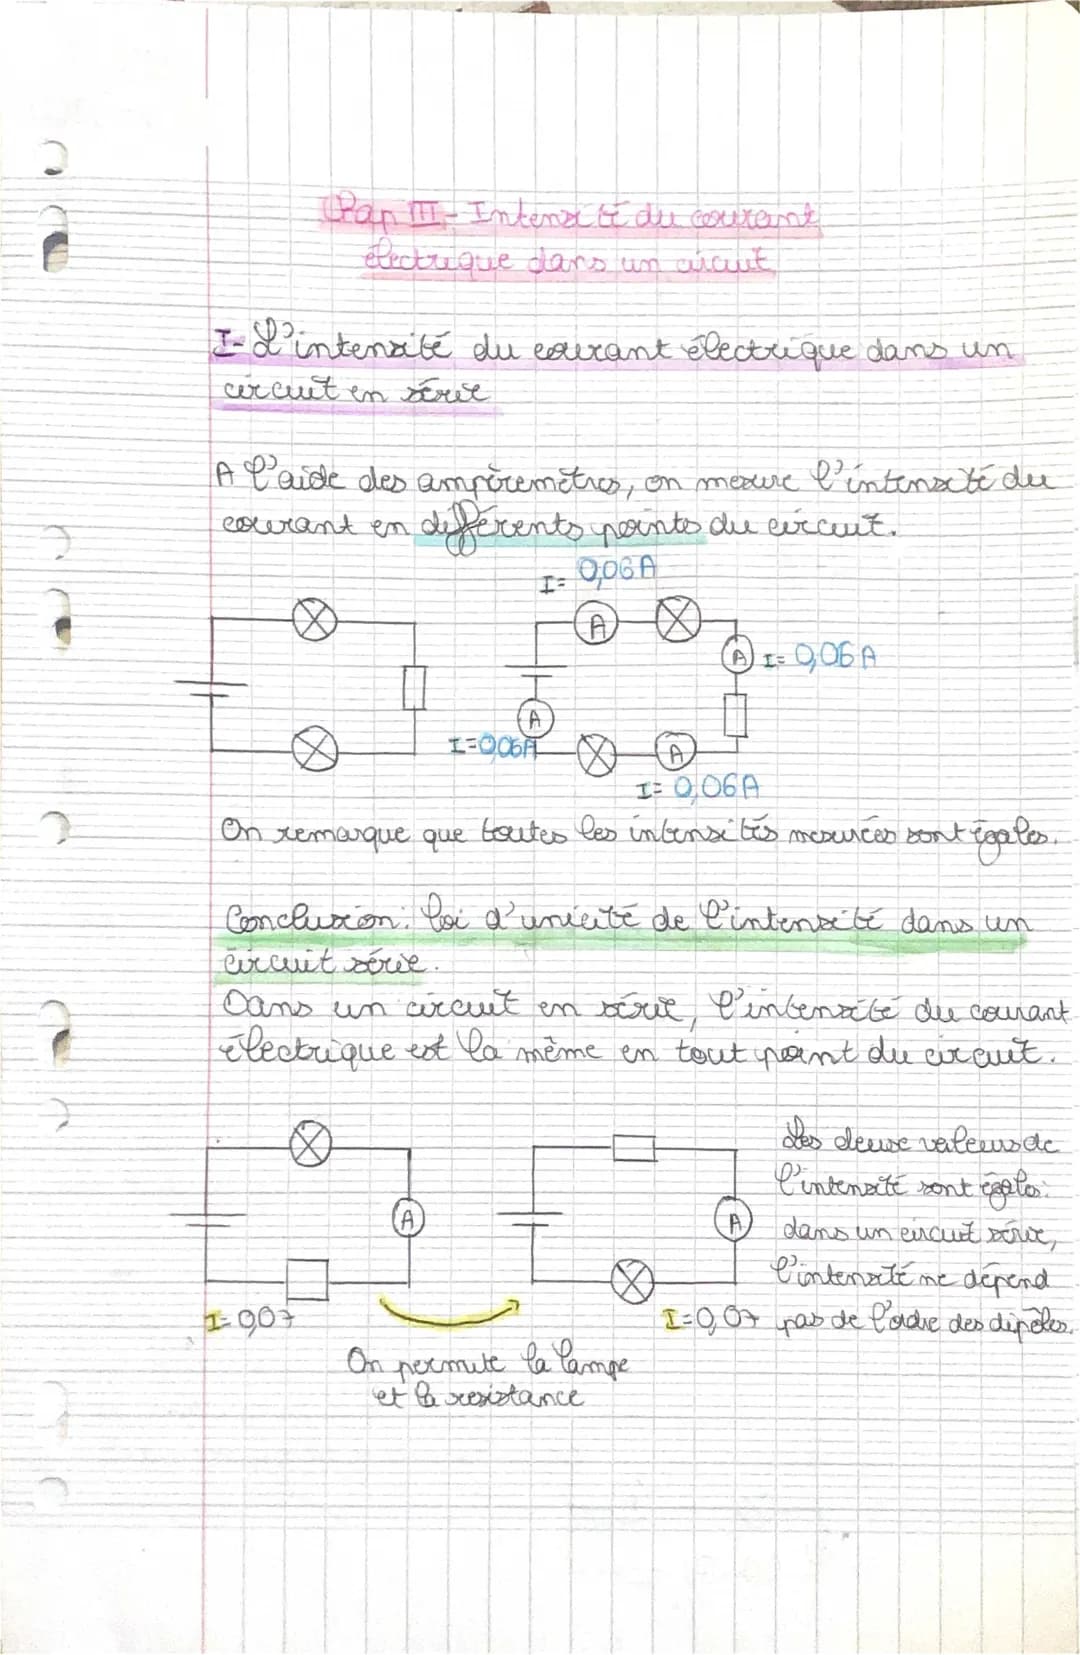 Chap III - Intensité du courant
électrique dans un circuit
I- L'intensité du courant électrique dans un
circuit en série
A l'aide des ampèremètres, on mesure l'intensité du
courant en différents points du circuit.
I= 0,06A
A
A I= 0,06A
A
I=0,06A
A
I= 0,06A
On remarque que toutes les intensités mesurées sont égales.
Conclusion: loi d'unicité de l'intensité dans un
circuit série.
Dans un circuit en série, l'intensité du courant
électrique est la même en tout point du circuit.
Les deux valeurs de
l'intensité sont égales:
A
A
dans un circuit série,
l'intensité ne dépend
I=0,07
I=0,07
pas de l'ordre des dipôles.
On permute la lampe
et la resistance